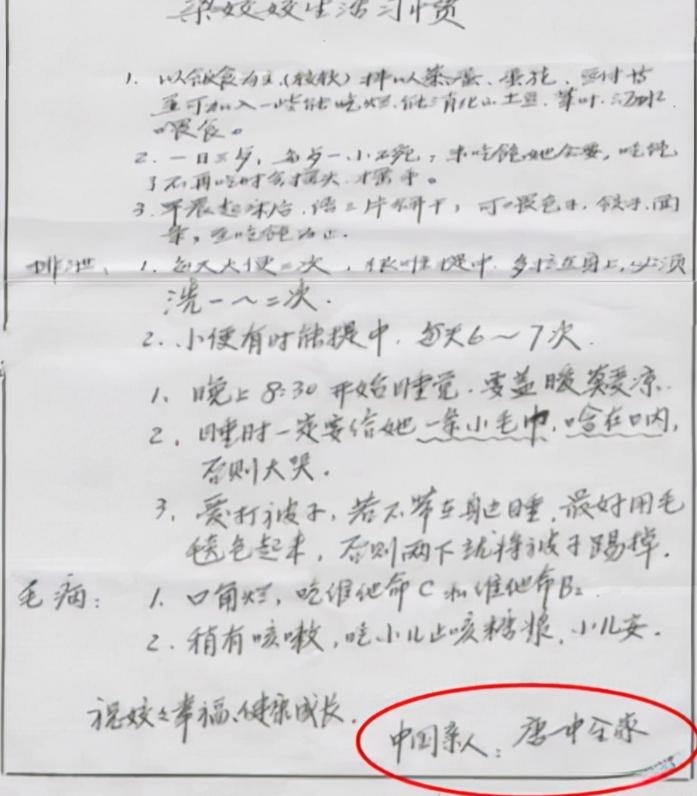 姣姣生活习惯
1. 以饮食为主(较软)排以蒸蛋、蛋花、
至可加入一些能吃烂.能消化山土豆.菜叶.
喂食。
2. 一日三岁, 每岁一小碗, 未吃饱她会要, 吃饱
了不再吃时会摇头.摆手。
3. 早晨起床后.语2片饼干, 可喂包子.饺子.面
条, 至吃饱为止.
排泄: 1. 每天大便二次, 很难提中.多拉在身上,必须
洗一~二次.
2. 小便有时能提中. 每天6~7次.
1. 晚上8:30开始睡觉.要盖暖莫受凉.
2. 睡时一定要给她一条小毛巾,含在口内,
否则大哭.
3. 爱打被子, 若不带在身边睡, 最好用毛
毯包起来, 否则两下就将被子踢掉.
毛病: 1. 口角烂, 吃维他命C和维他命B₂
2. 稍有咳嗽, 吃小儿止咳糖浆, 小儿安.
祝姣姣幸福、健康成长.
中国亲人: 唐中全家